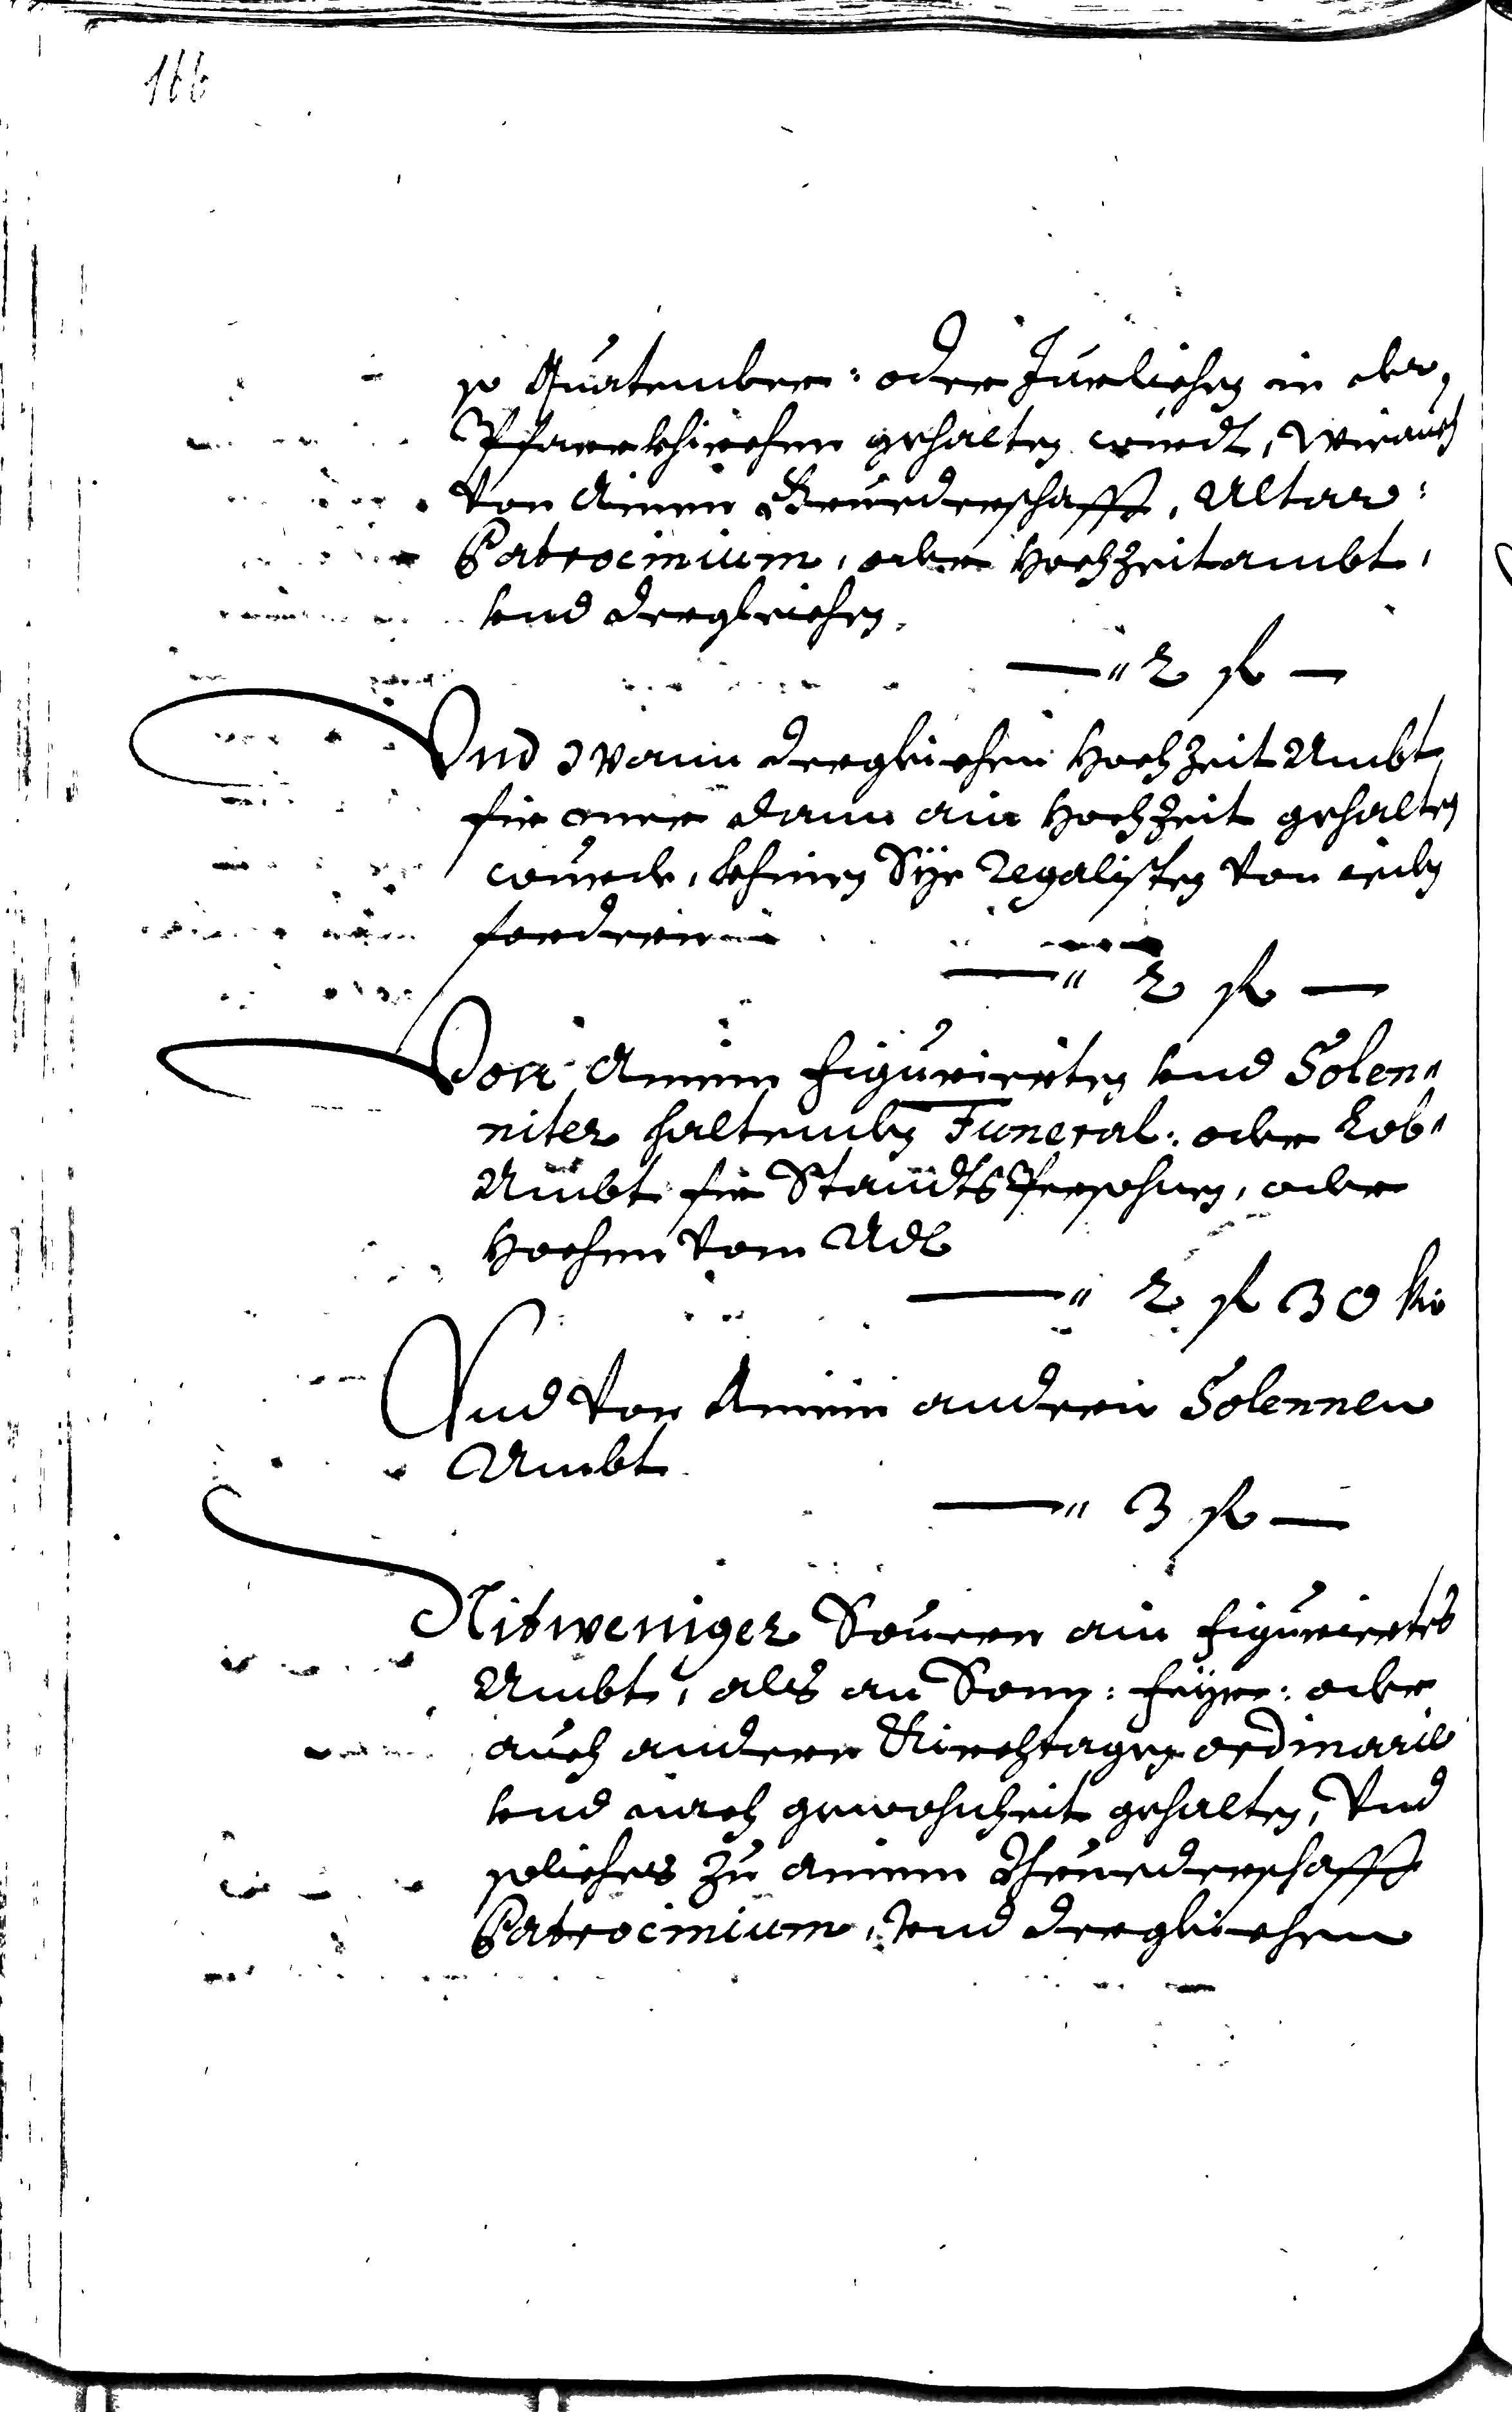 166
so Quatember: oder Jarlichen in der
Pfarrkhirchen gehalten würdt, wie auch
von Ainem Bruederschafft, Altar:
Patrocinium, oder Hochzeitambt,
und dergleichen.
—" 2 fl —
Und wann dergleichen Hochzeit Ambt
für mer dann ain Hochzeit gehalten
wurde, khinen Sÿe Regalisten von ieden
fordern
—" 2 fl —
Von Ainem figurierten und Solen"
niter haltenden Funeral: oder Lob"
Ambt für Standts Persohnen, oder
Hochen vom Adl
—" 2 fl 30 kr
Und von Ainem andern Solennen
Ambt
—" 3 fl —
Nitweniger Souern ain figuriertes
Ambt, als an Sonn: feÿr: oder
auch andern Kirchtagen ordinarie
und nach gewohnheit gehalten, Und
soliches zu ainem Bruederschafft
Patrocinium, und dergleichen